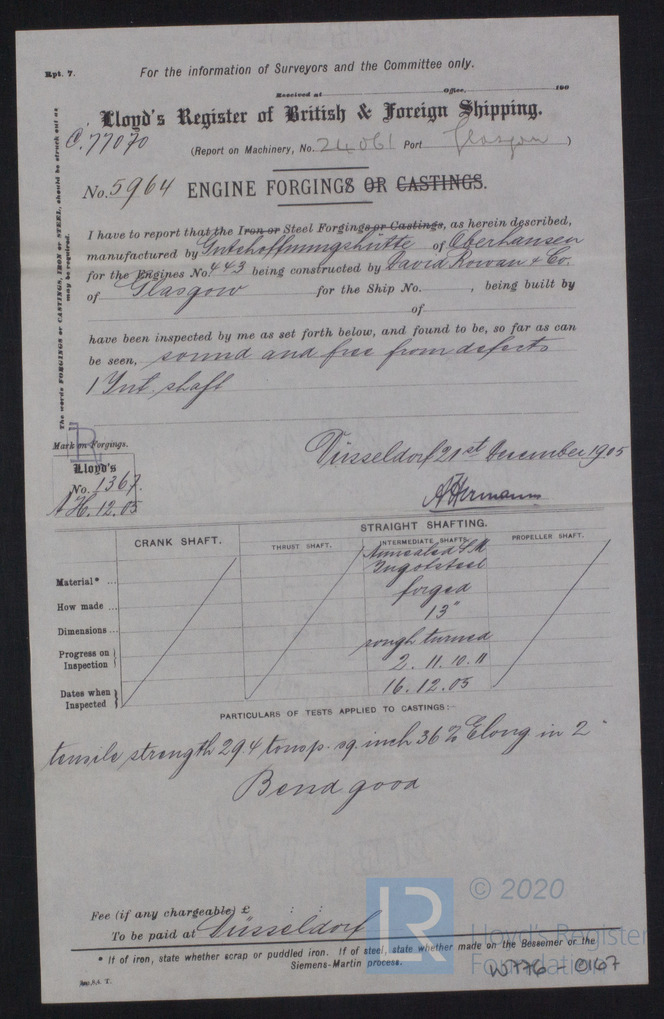 Rpt. 7.
For the information of Surveyors and the Committee only.
Received at Office, 190
Lloyd's Register of British & Foreign Shipping.
C. 77070
(Report on Machinery, No. 24061 Port Glasgow )
No. 5964 ENGINE FORGINGS OR CASTINGS.
The words FORGINGS or CASTINGS, IRON or STEEL, should be struck out as may be required.
I have to report that the Iron or Steel Forgings or Castings, as herein described,
manufactured by Gutehoffnungshütte of Oberhausen
for the Engines No. 443 being constructed by David Rowan & Co.
of Glasgow for the Ship No. , being built by
of
have been inspected by me as set forth below, and found to be, so far as can
be seen, sound and free from defects
1 Int. shaft
Mark on Forgings.
LR
Lloyd's
No. 1367.
A H. 12.05
Düsseldorf 21st December 1905
A Hermanns
CRANK SHAFT. STRAIGHT SHAFTING.
THRUST SHAFT. INTERMEDIATE SHAFTS. PROPELLER SHAFT.
Material* ... Annealed S.M
Ingotsteel
How made ... forged
Dimensions ... 13"
Progress on Inspection rough turned
Dates when Inspected 2. 11. 10. 11
16. 12. 05
PARTICULARS OF TESTS APPLIED TO CASTINGS:-
tensile strength 29.4 tons p. sq. inch 36% Elong in 2"
Bend good
Fee (if any chargeable) £ : :
To be paid at Düsseldorf
* If of iron, state whether scrap or puddled iron. If of steel, state whether made on the Bessemer or the
Siemens-Martin process.
LR
© 2020
Lloyd's Register
Foundation
W776 - 0167